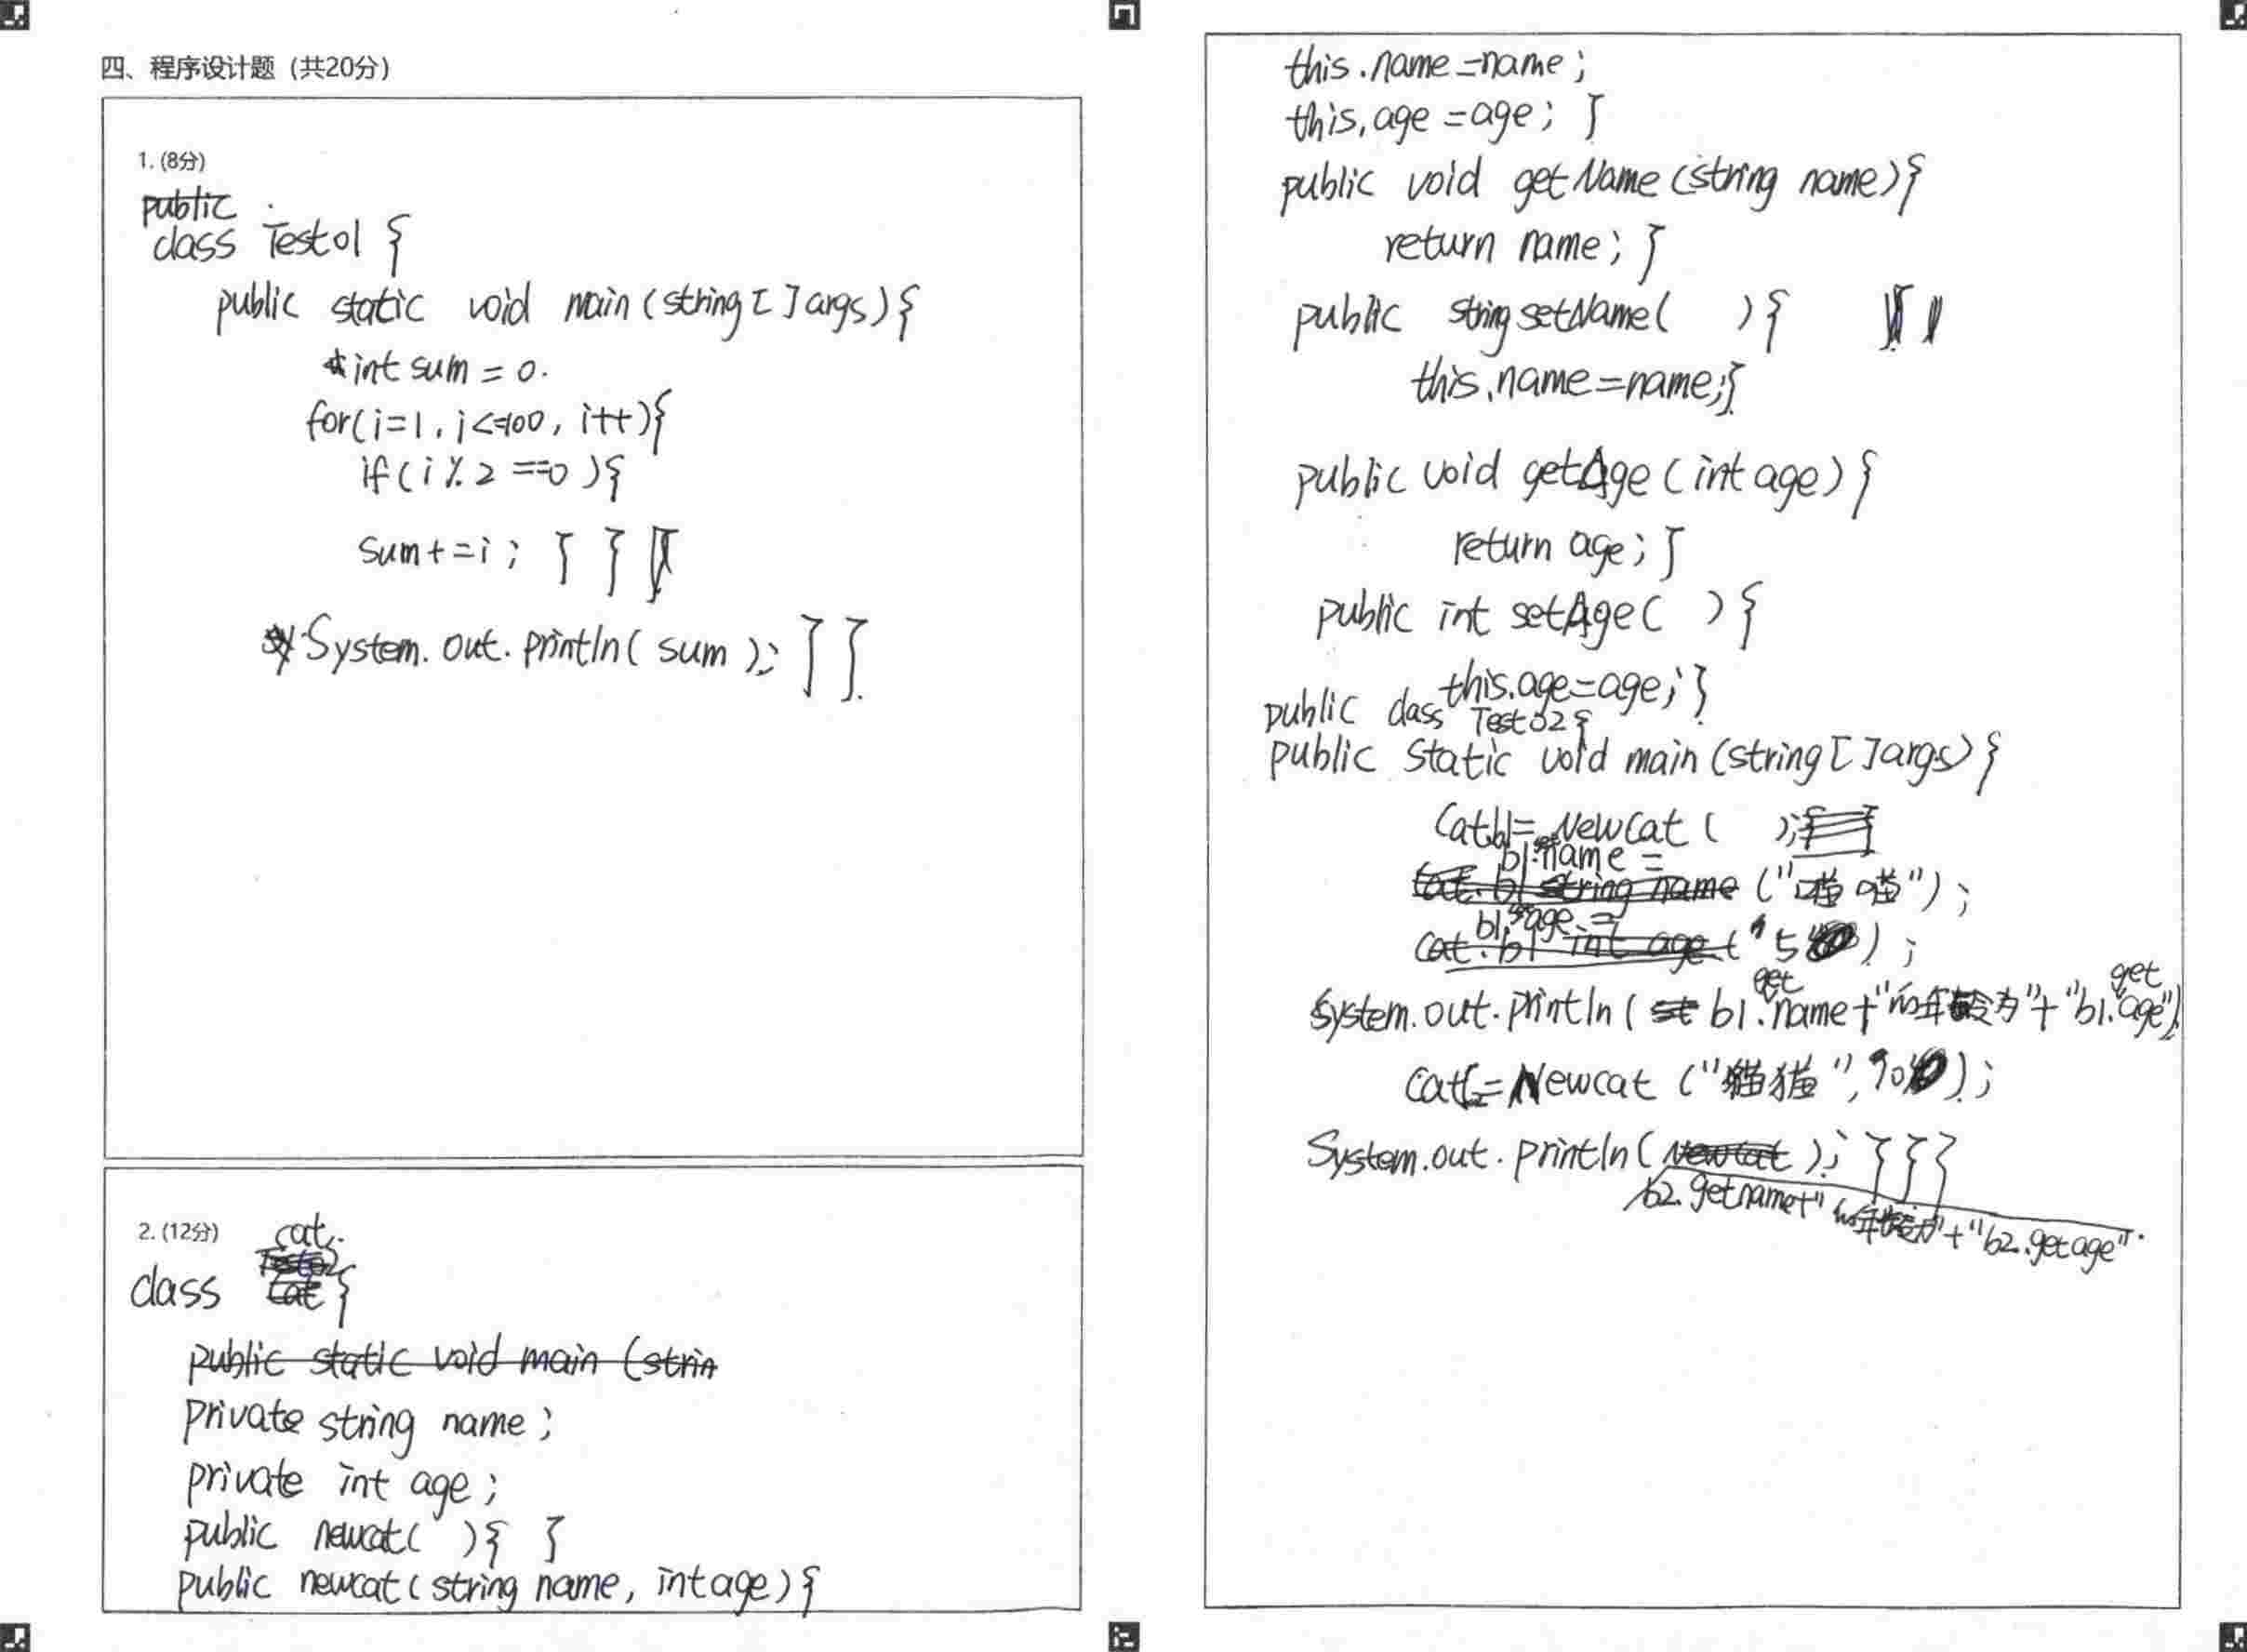 四、程序设计题（共20分）
1. (8分)
public
class Test01 {
public static void main (string [ ] args) {
int sum = 0.
for(i=1, i<=100, i++){
if ( i % 2 ==0 ){
sum+=i ; } }
System.out.println( sum ); } }
2. (12分)
cat
class {
public static void main (strin
private string name ;
private int age ;
public newcat( ){ }
public newcat(string name, int age){
this.name=name ;
this.age=age ; }
public void getName (string name){
return name ; }
public string setName( ){
this.name=name;}
public void getAge (int age) {
return age ; }
public int setAge( ) {
this.age=age ; }
public class Test02{
public static void main (string [ ] args) {
Cat b1= New Cat ( );
b1.name =
cat. b1 string name ("喵喵") ;
b1. age =
cat. b1 int age ( 5 ) ;
System.out.println( b1.getname+"的年龄为"+"b1.getage")
Cat = New cat ("猫猫", 10 ) ;
System.out.println( New cat ); } } }
b2.getname+"的年龄为"+"b2.getage".